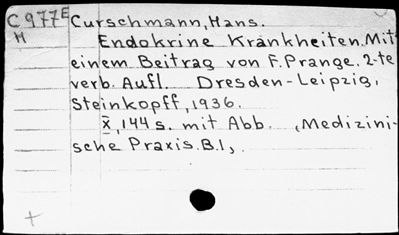 C 977E Curschmann, Hans.
H
Endokrine Krankheiten. Mit
einem Beitrag von F. Prange. 2-te
verb. Aufl. Dresden-Leipzig,
Steinkopff, 1936.
X, 144 s. mit Abb. (Medizini-
sche Praxis. B.1).
+